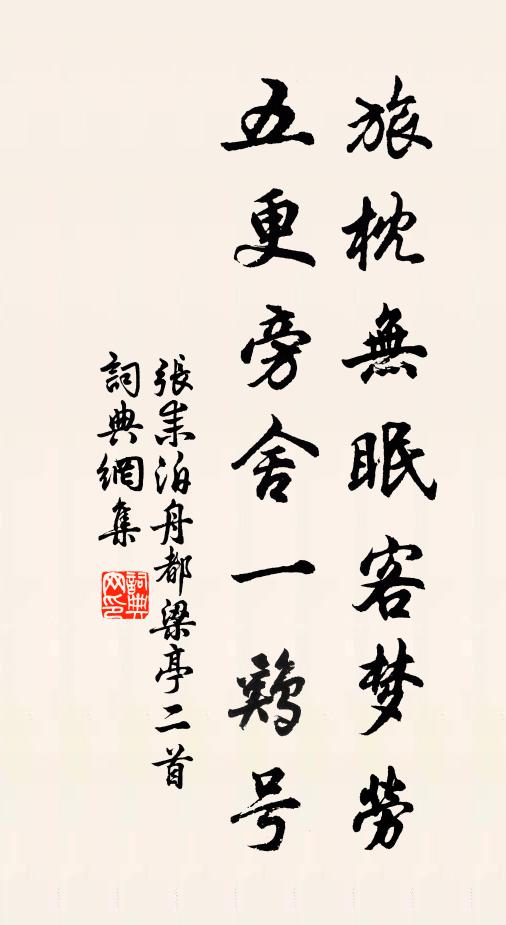 旅枕無眠客梦勞
五更旁舍一鷄号
張耒泊舟都梁亭二首
詞典網集
詞典网印